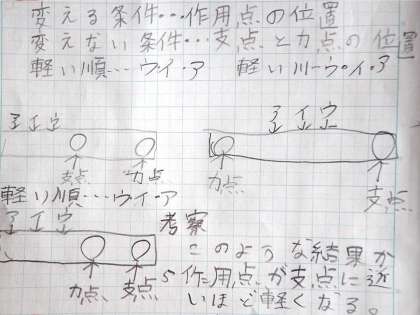 変える条件…作用点の位置
変えない条件…支点と力点の位置
軽い順…ウ・イ・ア 軽い順…ウ・イ・ア
アイウ
支点 力点
アイウ
力点 支点
軽い順…ウ・イ・ア
アイウ
力点 支点
考察
このような結果か
ら作用点が支点に近
いほど軽くなる。